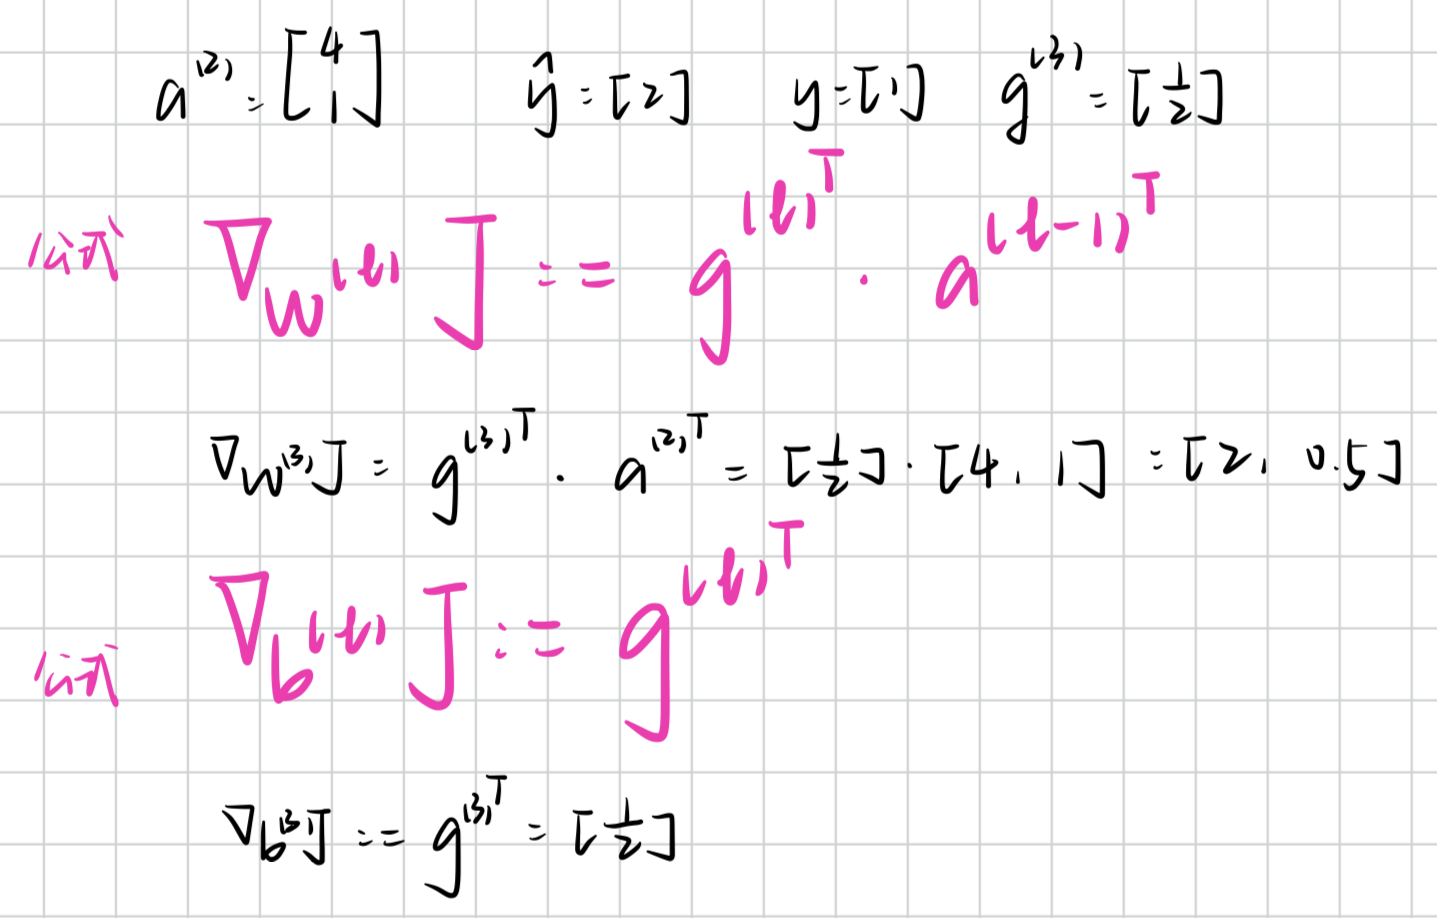 a⁽²⁾ = [4 1] ŷ = [2] y = [1] g⁽³⁾ = [1/2]
公式 ∇_W⁽ˡ⁾ J := = g⁽ˡ⁾ᵀ · a⁽ˡ⁻¹⁾ᵀ
∇_W⁽³⁾ J = g⁽³⁾ᵀ · a⁽²⁾ᵀ = [1/2] · [4, 1] = [2, 0.5]
公式 ∇_b⁽ˡ⁾ J := g⁽ˡ⁾ᵀ
∇_b⁽³⁾ J := = g⁽³⁾ᵀ = [1/2]